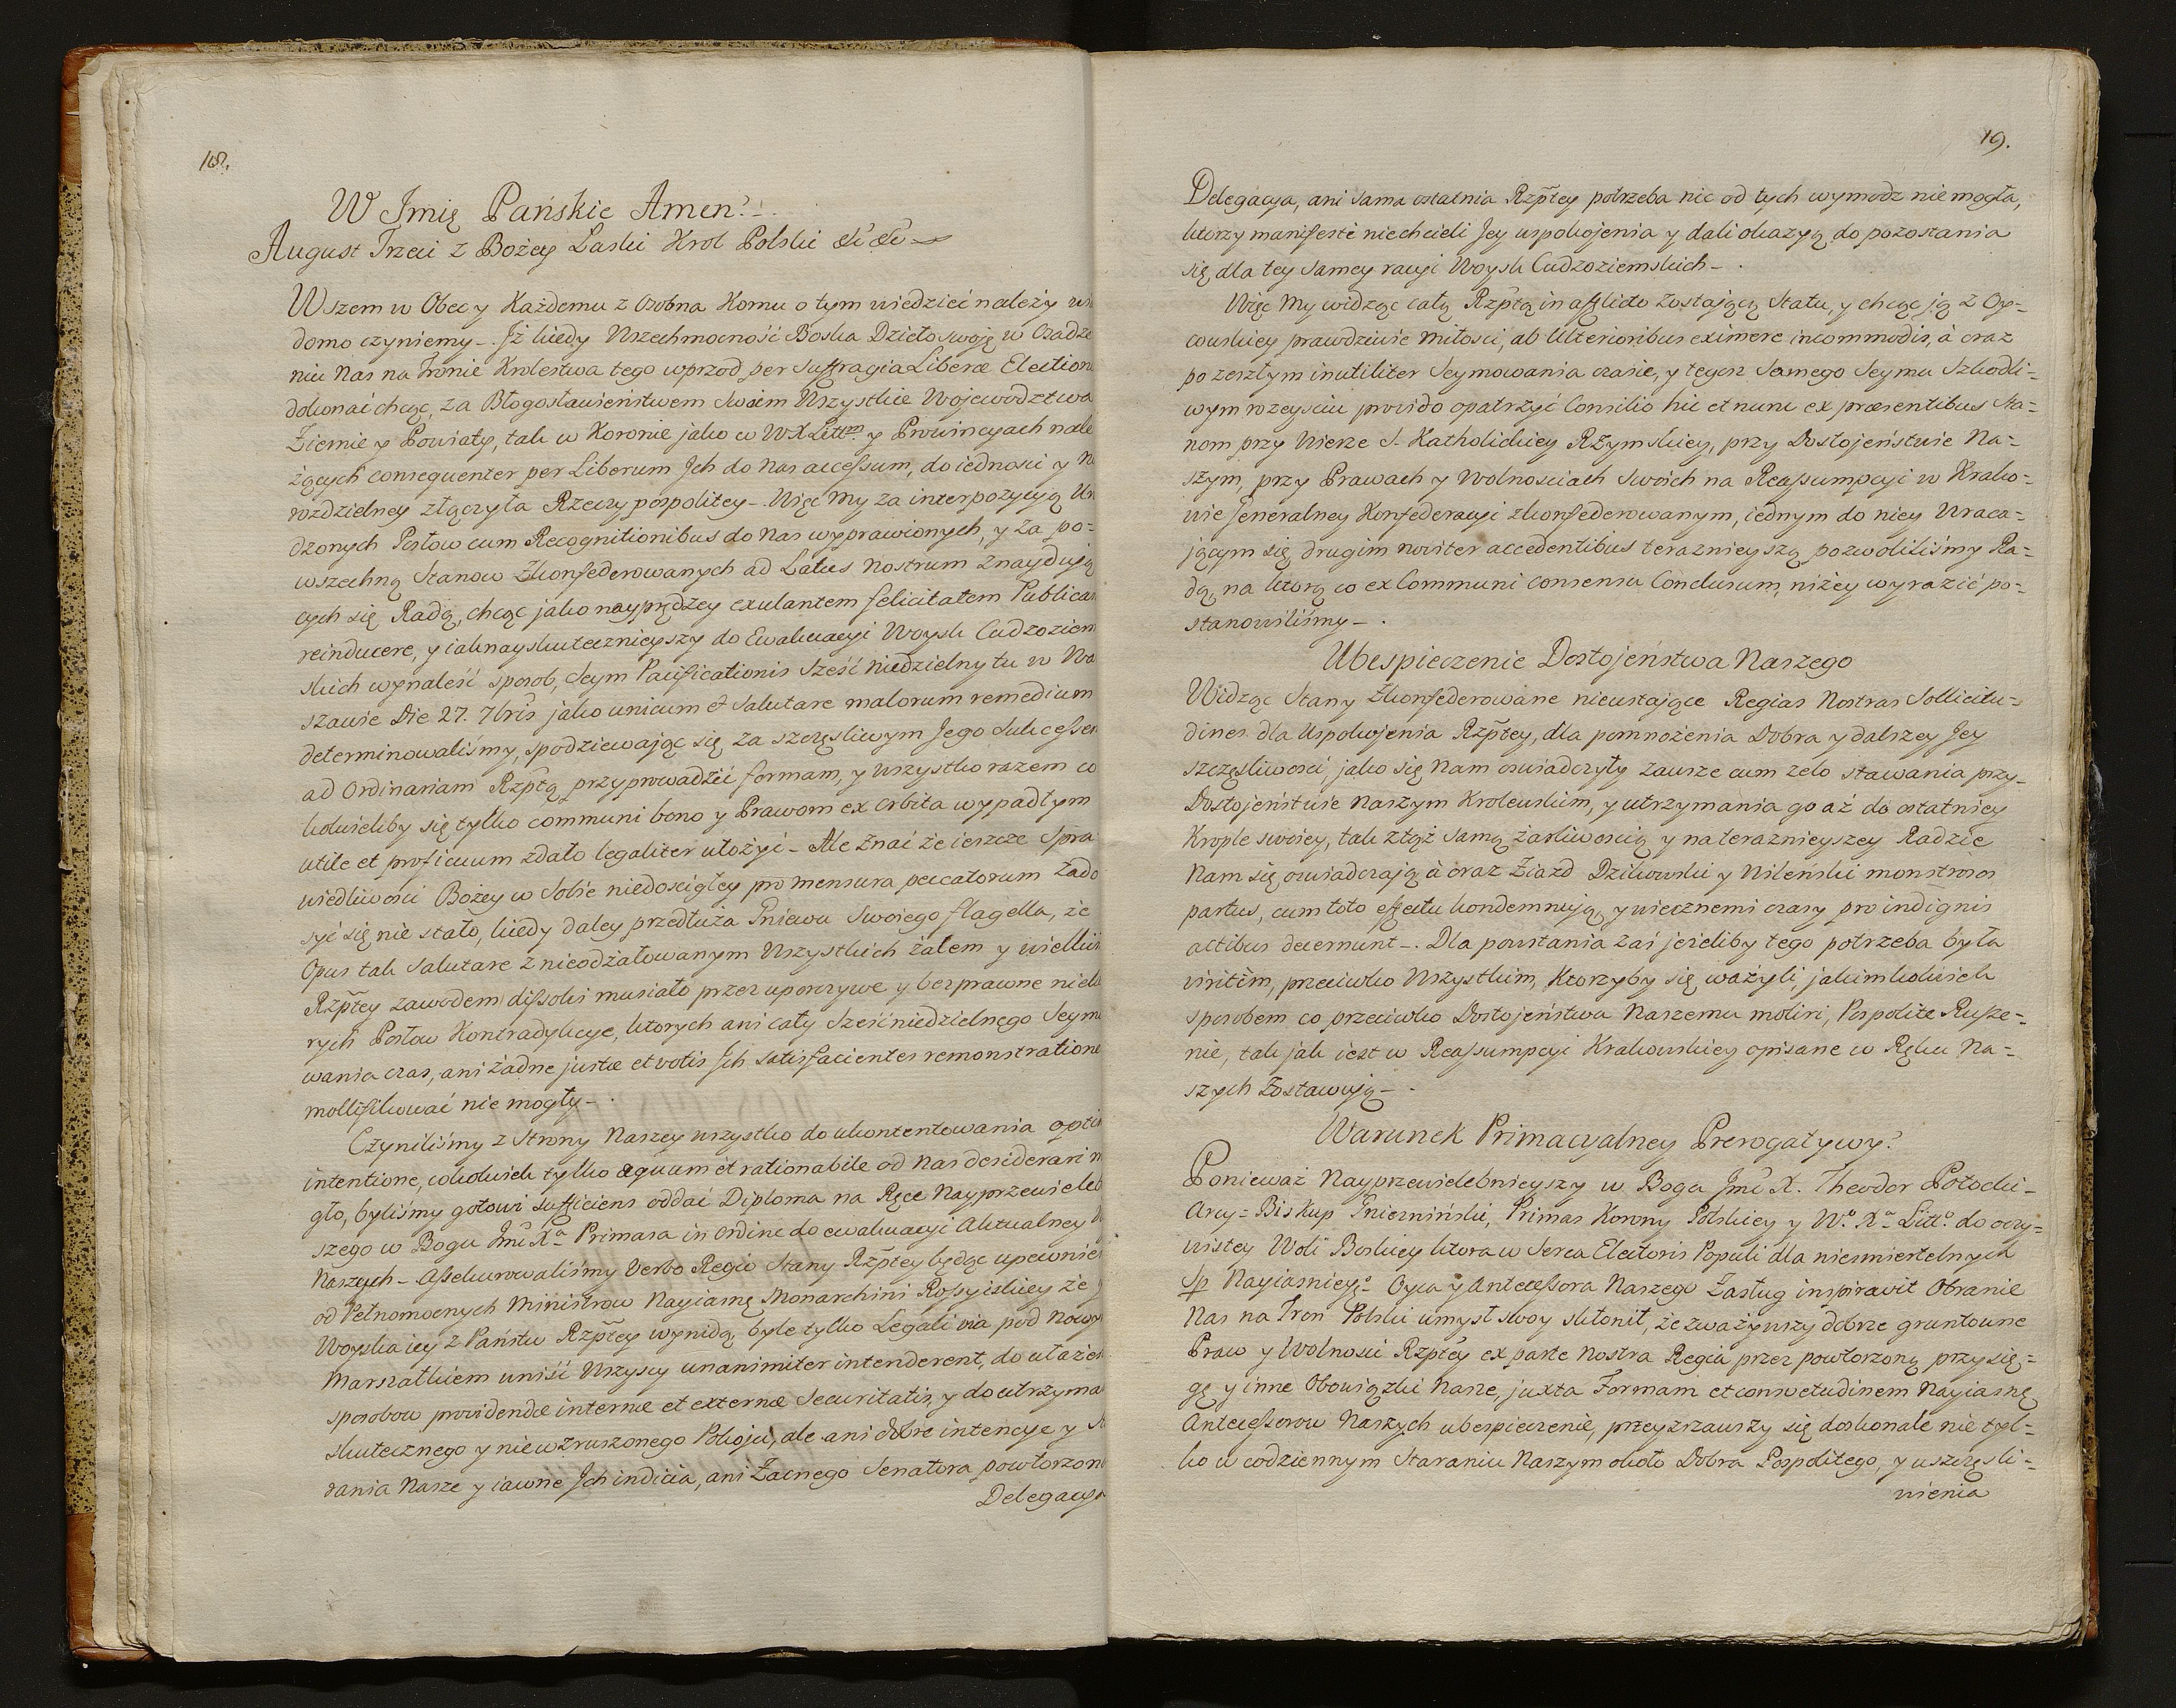 18.
W Imię Pańskie Amen.
August Trzeci z Bożey Laski Krol Polski &c &c
Wszem w Obec y Każdemu z osobna Komu o tym wiedzieć należy wia
domo czyniemy _. Jż kiedy Wszechmocność Boska Dzieło swoję w Osadze
niu Nas na Tronie Krolestwa tego wprzod per Suffragia Liberæ Election
dokonać chcąc, za Błogosławieństwem Swoim Wszystkie Wojewodztwa
Ziemie y Powiaty, tak w Koronie jako w WXLittm y Prowincyach nale
żących consequenter per Liberum Jch do Nas accessum, do iedności y Nie
rozdzielney złączyła Rzeczypospolitey _. Więc My za interpozycyą Uro
dzonych Posłow cum Recognitionibus do Nas wyprawionych, y za po=
wszechną Stanow Zkonfederowanych ad Latus Nostrum Znayduią
cych się Radą, chcąc jako nayprędzey exulantem felicitatem Publicam
reinducere, y iaknayskutecznieyszy do Ewakuacyi Woysk Cudzoziem
skich wynaleść sposob, Seym Pacificationis Sześć niedzielny tu w Wa
szawie Die 27. 7bris jako unicum et Salutare malorum remedium
determinowaliśmy, spodziewając się za szczęsliwym Jego Sukcessem
ad Ordinariam Rzptą przyprowadzić formam, y wszystko razem co
kolwiekby się tylko communi bono y Prawom ex orbita wypadłym
utile et proficuum zdało legaliter ułożyć _ Ale znać że ieszcze Spra
wiedliwości Bożey w Sobie niedościgłey pro mensura peccatorum zado
syć się nie stało, kiedy daley przedłuża Gniewu Swoiego flagella, że
Opus tak Salutare z nieodżałowanym Wszystkich żalem y wielkim
Rzptey zawodem dissolvi musiało przez uporczywe y bezprawne niekto
rych Posłow Kontradykcye, ktorych ani cały Sześćniedzielnego Seymo
wania czas, ani żadne justæ et votis Jch Satisfacientes remonstratione
mollifikować nie mogły _.
Czyniliśmy z Strony Naszey wszystko do ukontentowania optim
intentione, cokolwiek tylko æquum et rationabile od Nas desiderari m
gło, byliśmy gotowi Sufficiens oddać Diploma na Ręce Nayprzewieleb
szego w Bogu Jmć Xa Primasa in Ordine do ewakuacyi Aktualney W
Naszych _ Assekurowaliśmy Verbo Regio Stany Rzptey będąc upewnieni
od Pełnomocnych Ministrow Nayiasnę Monarchini Rossyiskiey że
Woyska iey z Państw Rzptey wynidą, byle tylko Legali via pod Nowy
Marszałkiem uniść Wszyscy unanimiter intenderent, do ułażen
sposobow providendæ internæ et externæ Securitatis, y do utrzyma
skutecznego y niewzruszonego Pokoju, ale ani dobre intencye y St
rania Nasze y iawne Jch indicia, ani Zacnego Senatora powtorzone
Delegacya
19.
Delegacya, ani sama ostatnia Rzptey potrzeba nic od tych wymodz nie mogła,
ktorzy manifeste niechcieli Jey uspokojenia y dali okazyą do pozostania
się dla tey samey racyi Woysk Cudzoziemskich _.
Więc My widząc całą Rzptą in afflicto zostającą Statu, y chcąc ją z Oy=
cowskiey prawdziwie miłości, ab Ulterioribus eximere incommodis, à oraz
po zeszłym inutiliter Seymowania czasie, y tegoż Samego Seymu Szkodli=
wym rozeysciu provido opatrzyć Consilio hic et nunc ex præsentibus Sta=
nom przy Wierze S. Katholickiey Rzymskiey, przy Dostojeństwie Na=
szym, przy Prawach y Wolnosciach Swoich na Reassumpcyi w Krako=
wie Generalney Konfederacyi zkonfederowanym, iednym do niey Wraca=
jącym się drugim noviter accedentibus teraznieyszą pozwoliliśmy Ra=
dę, na ktorą co ex Communi consensu Conclusum, niżey wyrazić po=
stanowiliśmy _.
Ubespieczenie Dostojeństwa Naszego
Widząc Stany Zkonfederowane nieustające Regias Nostras Sollicitu=
dines dla Uspokojenia Rzptey, dla pomnożenia Dobra y dalszey Jey
szczęsliwości, jako się Nam oswiadczyły zawsze cum zelo stawania przy
Dostojeństwie Naszym Krolewskim, y utrzymania go aż do ostatniey
Krople swoiey, tak ztąż samą żarliwością y na teraznieyszey Radzie
Nam się oswiadczają à oraz Ziazd Dzikowski y Wileński monstrosos
partus, cum toto effectu kondemnują y wiecznemi czasy pro indignis
actibus decernunt _. Dla powstania zaś jeżeliby tego potrzeba była
viritim, przeciwko Wszystkim, Ktorzyby się ważyli, jakimkolwiek
sposobem co przeciwko Dostojeństwu Naszemu moliri, Pospolite Rusze=
nie, tak jak iest w Reassumpcyi Krakowskiey opisane w Ręku Na=
szych Zostawują _.
Warunek Primacyalney Prerogatywy.
Ponieważ Nayprzewielebnieyszy w Bogu Jmć X. Theodor Potocki _
Arcy=Biskup Gniezniński, Primas Korony Polskiey y Wo. Xa Litto. do oczy=
wistey Woli Boskiey ktora w Serca Electoris Populi dla niesmiertelnych
Sp Nayiasnieyo. Oyca y Antecessora Naszego Zasług inspiravit Obranie
Nas na Tron Polski umysł swoy skłonił, że zważywszy dobrze gruntowne
Praw y Wolności Rzptey ex parte Nostra Regia przez powtorzoną przysię=
gę y inne Obowiązki Nasze, juxta Formam et consvetudinem Nayiasnę
Antecessorow Naszych ubespieczenie, przeyzrzawszy się doskonale nie tyl=
ko w codziennym Staraniu Naszym około Dobra Pospolitego, y uszczęsli=
wienia